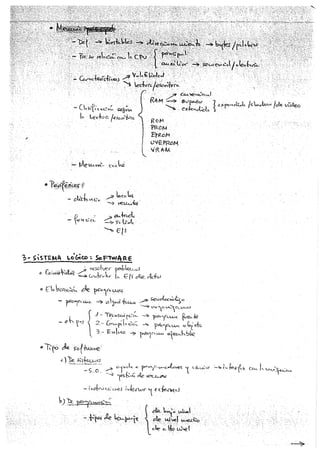 • Memoria
- Def. → biestables → direccionamiento → bytes/palabra
- Por su relación con la CPU { principal
auxiliar → secuencial/aleatoria
- Características → Volatilidad
→ lectura/escritura
- Clasificación según
la lectura/escritura
RAM → convencional
→ superior
→ extendida } expandida
ROM
PROM
EPROM
UVEPROM
VRAM
- Memoria caché
• Periféricos:
- distancia → locales
→ remotos
- función → entrada
→ salida
→ E/S
3- SISTEMA LÓGICO: SOFTWARE
• Cometidos → resolver problemas
→ controlar la E/S de datos
• Elaboración de programas
- programa → algoritmo →
- etapas { 1- Transcripción → programa fuente
2- Compilación → programa objeto
3- Enlace → programa ejecutable
• Tipo de software
a) De sistemas
- S.O. → ayuda a programadores y usuario → interfaz con la máquina
→ gestión de recursos
- instrucciones internas y externas
b) De programación
- tipos de lenguaje { de bajo nivel
de nivel medio
de alto nivel